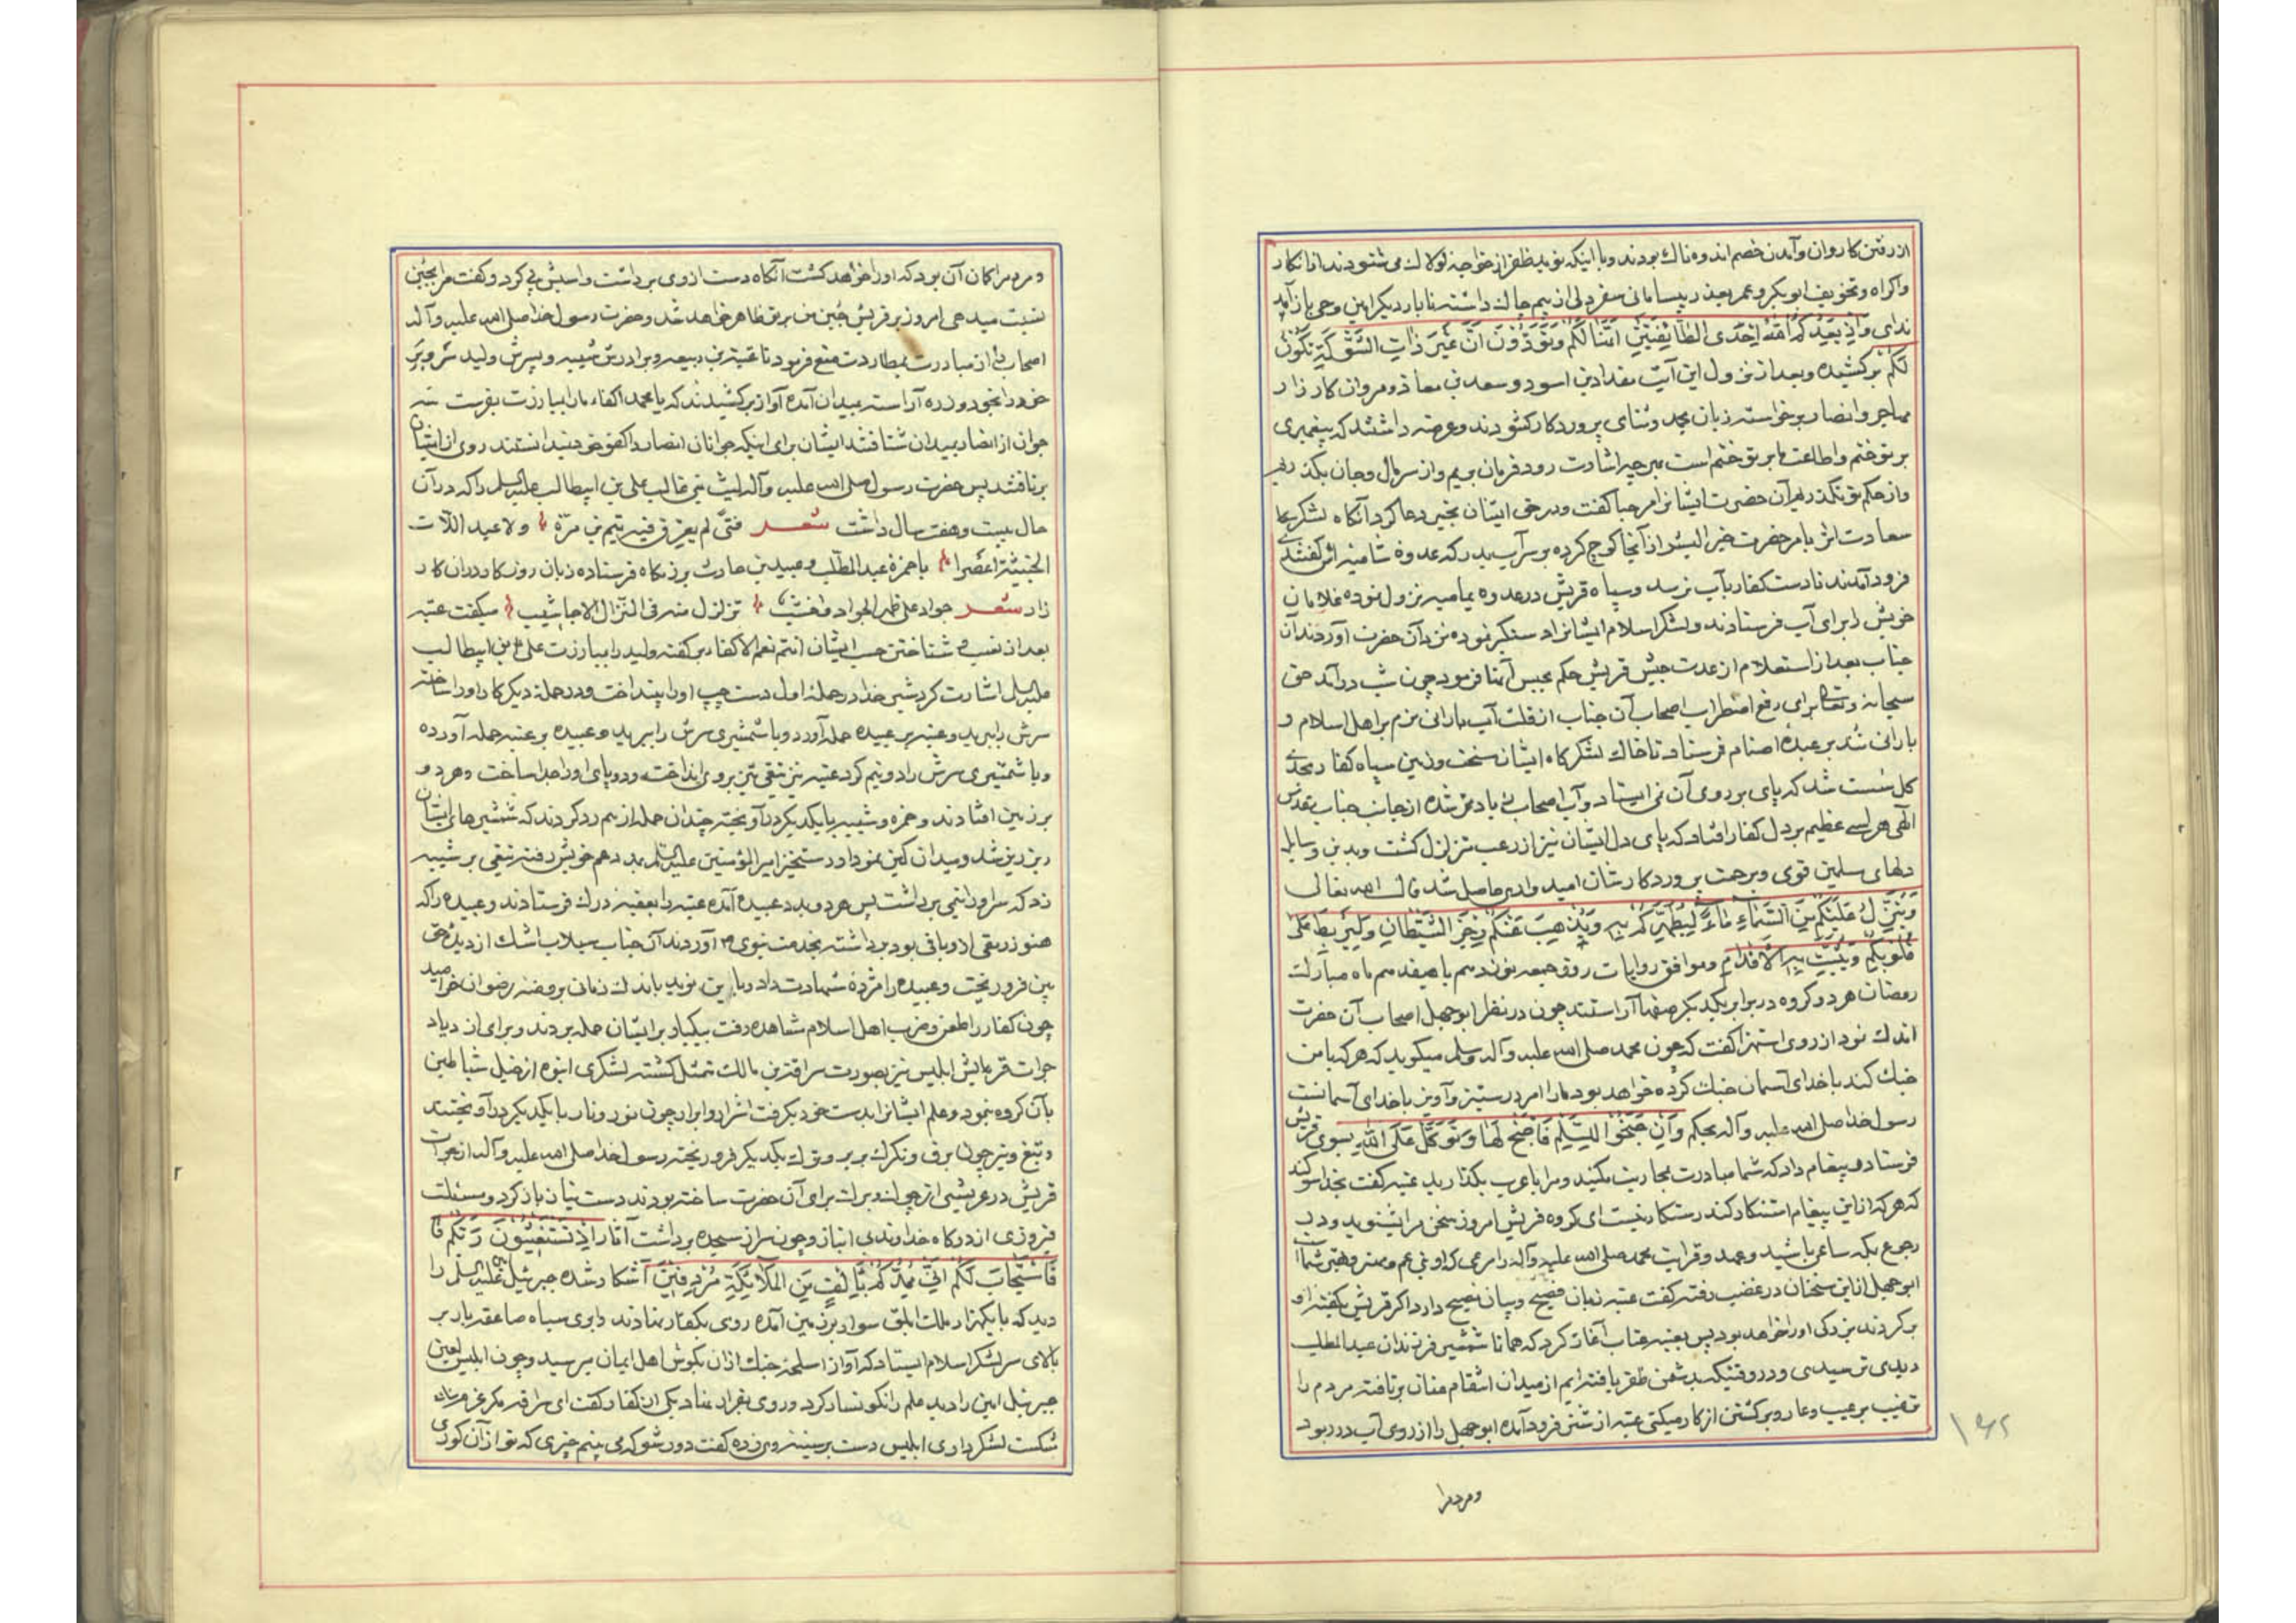 از رفتن کاروان و آمدن خصم اندوه ناك بودند و با اینکه نوید ظفر از خواجه لولاك می شنودند از انکار
و اکراه و تخویف ابوبکر و عمر بعضی در بیسامانی سفر دلی از بیم چاك داشته تا بار دیگر امین وحی باز آمد
ندای وَاِذْ یَعِدُکُمُ اللهُ اِحْدَی الطّائِفَتَیْنِ اَنَّها لَکُمْ وَتَوَدُّونَ اَنَّ غَیْرَ ذاتِ الشَّوْکَةِ تَکُونُ
لَکُمْ بر کشیده و بعد از نزول این آیت مقداد بن اسود و سعد بن معاذ و مردان کار زار
مهاجر و انصار بر خواسته زبان بحمد و ثنای پروردکار کشودند و عرضه داشتند که پیغمبری
بر تو ختم و اطاعت ما بر تو ختم است بهر چه اشارت رود فرمان بریم و از سر مال و جان بکذریم
و از حکم تو نکذریم آن حضرت ایشانرا مرحبا کفت و در حق ایشان بخیر دعا کرد آنکاه لشکر
سعادت اثر بامر حضرت خیر البشر از آنجا کوچ کرده بر سر آب بدر که عدوه شامیه اش کفتندی
فرود آمدند تا دست کفار بآب نرسد و سپاه قریش در عدوه یمامیه نزول نموده غلامان
خویش را برای آب فرستادند و لشکر اسلام ایشانرا دستکیر نموده نزد آن حضرت آوردند آن
جناب بعد از استعلام از عدت جیش قریش حکم بحبس آنها فرمود چون شب در آمد حق
سبحانه و تعالی برای رفع اضطراب اصحاب آن جناب از قلت آب بارانی نرم بر اهل اسلام و
بارانی شد بر عبده اصنام فرستاد تا خاك لشکرکاه ایشان سخت و زمین سپاه کفار بحدی
کل سست شد که پای بر روی آن نمی ایستاد و آب اصحاب نیز یاد تر شده از جانب جناب تقدس
الهی هراسی عظیم بر دل کفار افتاد که پای دل ایشان نیز از رعب متزلزل کشت و بدین وسایل
دلهای مسلمین قوی و برحمت پروردکارشان امیدواری حاصل شد قال الله تعالی
وَیُنَزِّلُ عَلَیْکُمْ مِنَ السَّماءِ ماءً لِیُطَهِّرَکُمْ بِهِ وَیُذْهِبَ عَنْکُمْ رِجْزَ الشَّیْطانِ وَلِیَرْبِطَ عَلی
قُلُوبِکُمْ وَیُثَبِّتَ بِهِ الاَقْدامَ و موافق روایات روز جمعه نوزدهم یا هفدهم ماه مبارك
رمضان هر دو کروه در برابر یکدیکر صفها آراستند چون در نظر ابوجهل اصحاب آن حضرت
اندك نمود از روی استهزا کفت که چون محمد صلی الله علیه و آله وسلم میکوید که هر که با من
جنك کند با خدای آسمان جنك کرده خواهد بود ما را امروز ستیز و آویز با خدای آسمانست
رسول خدا صلی الله علیه و آله بحکم وَاِنْ جَنَحُوا لِلسَّلْمِ فَاجْنَحْ لَها وَتَوَکَّلْ عَلَی اللهِ بسوی قریش
فرستاده پیغام داد که شما مبادرت بمحاربت مکنید و مرا با عرب بکذارید عتبه کفت بخدا سوکند
که هر که از این پیغام استنکار کند رستکار نیست ای کروه قریش امروز سخن مرا بشنوید و در
رجوع بمکه ساعی باشید و عهد و قرابت محمد صلی الله علیه و آله را مرعی که او بنی عم و مهتر و بهتر شما است
ابوجهل از این سخنان در غضب رفته کفت عتبه زبان فصیح و بیان نصیح دارد اکر قریش بکفته او
بر کردند بزرکی او را خواهد بود پس بعتبه عتاب آغاز کرد که همانا شمشیر فرزندان عبدالمطلب
دیدی ترسیدی و در وقتیکه بدشمن ظفر یافته ایم از میدان انتقام عنان بر تافته مردم را
ترغیب بر عیب و عار و بر کشتن از کار میکنی عتبه از شتر فرود آمده ابوجهل را از روی آب در ربود
و مردمرا
و مردمرا کمان آن بود که او را خواهد کشت آنکاه دست از وی برداشت و اسبش پی کرد و کفت مرا بجبن
نسبت میدهی امروز بر قریش جبن من بر تو ظاهر خواهد شد و حضرت رسول خدا صلی الله علیه و آله
اصحاب را از مبادرت بمطاردت منع فرمود تا عتبة بن ربیعه و برادرش شیبه و پسرش ولید سر و بر
خود را بخود و زره آراسته بمیدان آمده آواز بر کشیدند که یا محمد اکفاء ما را بمبارزت بفرست سه
جوان از انصار بمیدان شتافتند ایشان برای اینکه جوانان انصار را کفو خود نمیدانستند روی از ایشان
بر تافتند پس حضرت رسول صلی الله علیه و آله لیث بنی غالب علی بن ابیطالب علیه السلم را که در آن
حال بیست و هفت سال داشت شعر فتیً لم یعرق فیه تیم بن مرّة و لا عبد اللآت
الخبیثة اعصرا با حمزة عبد المطلب و عبید بن حارث برزمکاه فرستاده زبان روزکار در آن کار
زار شعر جواد علی ظهر الجواد تزلزل منه فی النزال الاخاشیب میکفت عتبه
بعد از نسب شناختن حسب ایشان انتم نعم الاکفاء بر کفته ولید را بمبارزت علی بن ابیطالب
علیه السلم اشارت کرد شیر خدا در حمله اول دست چپ او را بینداخت و در حمله دیکر کار او را ساخته
سرش را ببرید و عتبه بر عبیده حمله آورد و با شمشیری سرش را ببرید و عبیده بر عتبه حمله آورده
و با شمشیری سرش را دو نیم کرد عتبه نیز تیغی تیز بر وی انداخت و دو پای او را جدا ساخت و هر دو
بر زمین افتادند و حمزه و شیبه با یکدیکر در آویخته چندان حمله از هم رد کردند که شمشیرهای ایشان
ریز ریز شد و میدان کین نمودار رستخیز امیرالمؤمنین علیه السلم بمدد عم خویش رفته تیغی بر شیبه
زد که سر او را نیمی برداشت پس هر دو بمدد عبیده آمده عتبه را بعقبه درك فرستادند و عبیده را که
هنوز رمقی از او باقی بود برداشته بخدمت نبوی ص آوردند آن جناب سیلاب اشك از دیده حق
بین فرو ریخت و عبیده را مژدهٔ شهادت داد و باین نوید باندك زمانی بروضه رضوان خرامید
چون کفار را طعن و ضرب اهل اسلام مشاهده رفت بیکبار بر ایشان حمله بردند و برای ازدیاد
جرات قریش ابلیس نیز بصورت سراقة بن مالك متمثل کشته لشکری انبوه از خیل شیاطین
بآن کروه نمود و علم ایشانرا بدست خود بکرفت اشرار و ابرار چون نور و نار با یکدیکر در آویختند
و تیغ و تیر چون برق و تکرك بر بر و ترك یکدیکر فرو ریخته رسول خدا صلی الله علیه و آله از جرات
قریش در عریشی از چوب برای آن حضرت ساخته بودند دست نیاز باز کرد و مسئلت
فیروزی از درکاه خداوند بی انباز و چون سر از سجده برداشت آثار اِذْ تَسْتَغیثُونَ رَبَّکُمْ فَا
فَاسْتَجابَ لَکُمْ اَنّی مُمِدُّکُمْ بِاَلْفٍ مِنَ المَلائِکَةِ مُرْدِفینَ آشکار شده جبرئیل علیه السلم را
دید که با یکهزار ملك ابلق سوار بزمین آمده روی بکفار نهادند و ابری سیاه صاعقه بار بر
بالای سر لشکر اسلام ایستاد که آواز اسلحه جنك از آن بکوش اهل ایمان میرسید و چون ابلیس لعین
جبرئیل امین را دید علم را نکونسار کرد و روی بفرار نهاد یکی از کفار کفت ای سراقه مکر عزم
شکست لشکر داری ابلیس دست بر سینه وی زده کفت دور شو که می بینم چیزی که تو از آن کوری